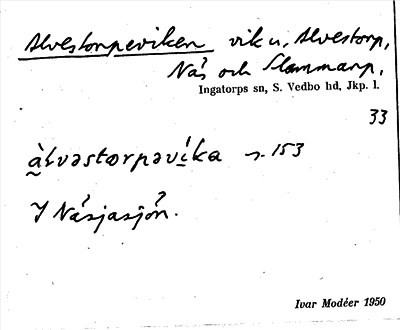 Alvestorpeviken vik u, Alvestorp,
Näs och Slammarp,
Ingatorps sn, S. Vedbo hd, Jkp. l.
33
àlvəstorpəvíka s. 153
I Näsjasjön.
Ivar Modéer 1950